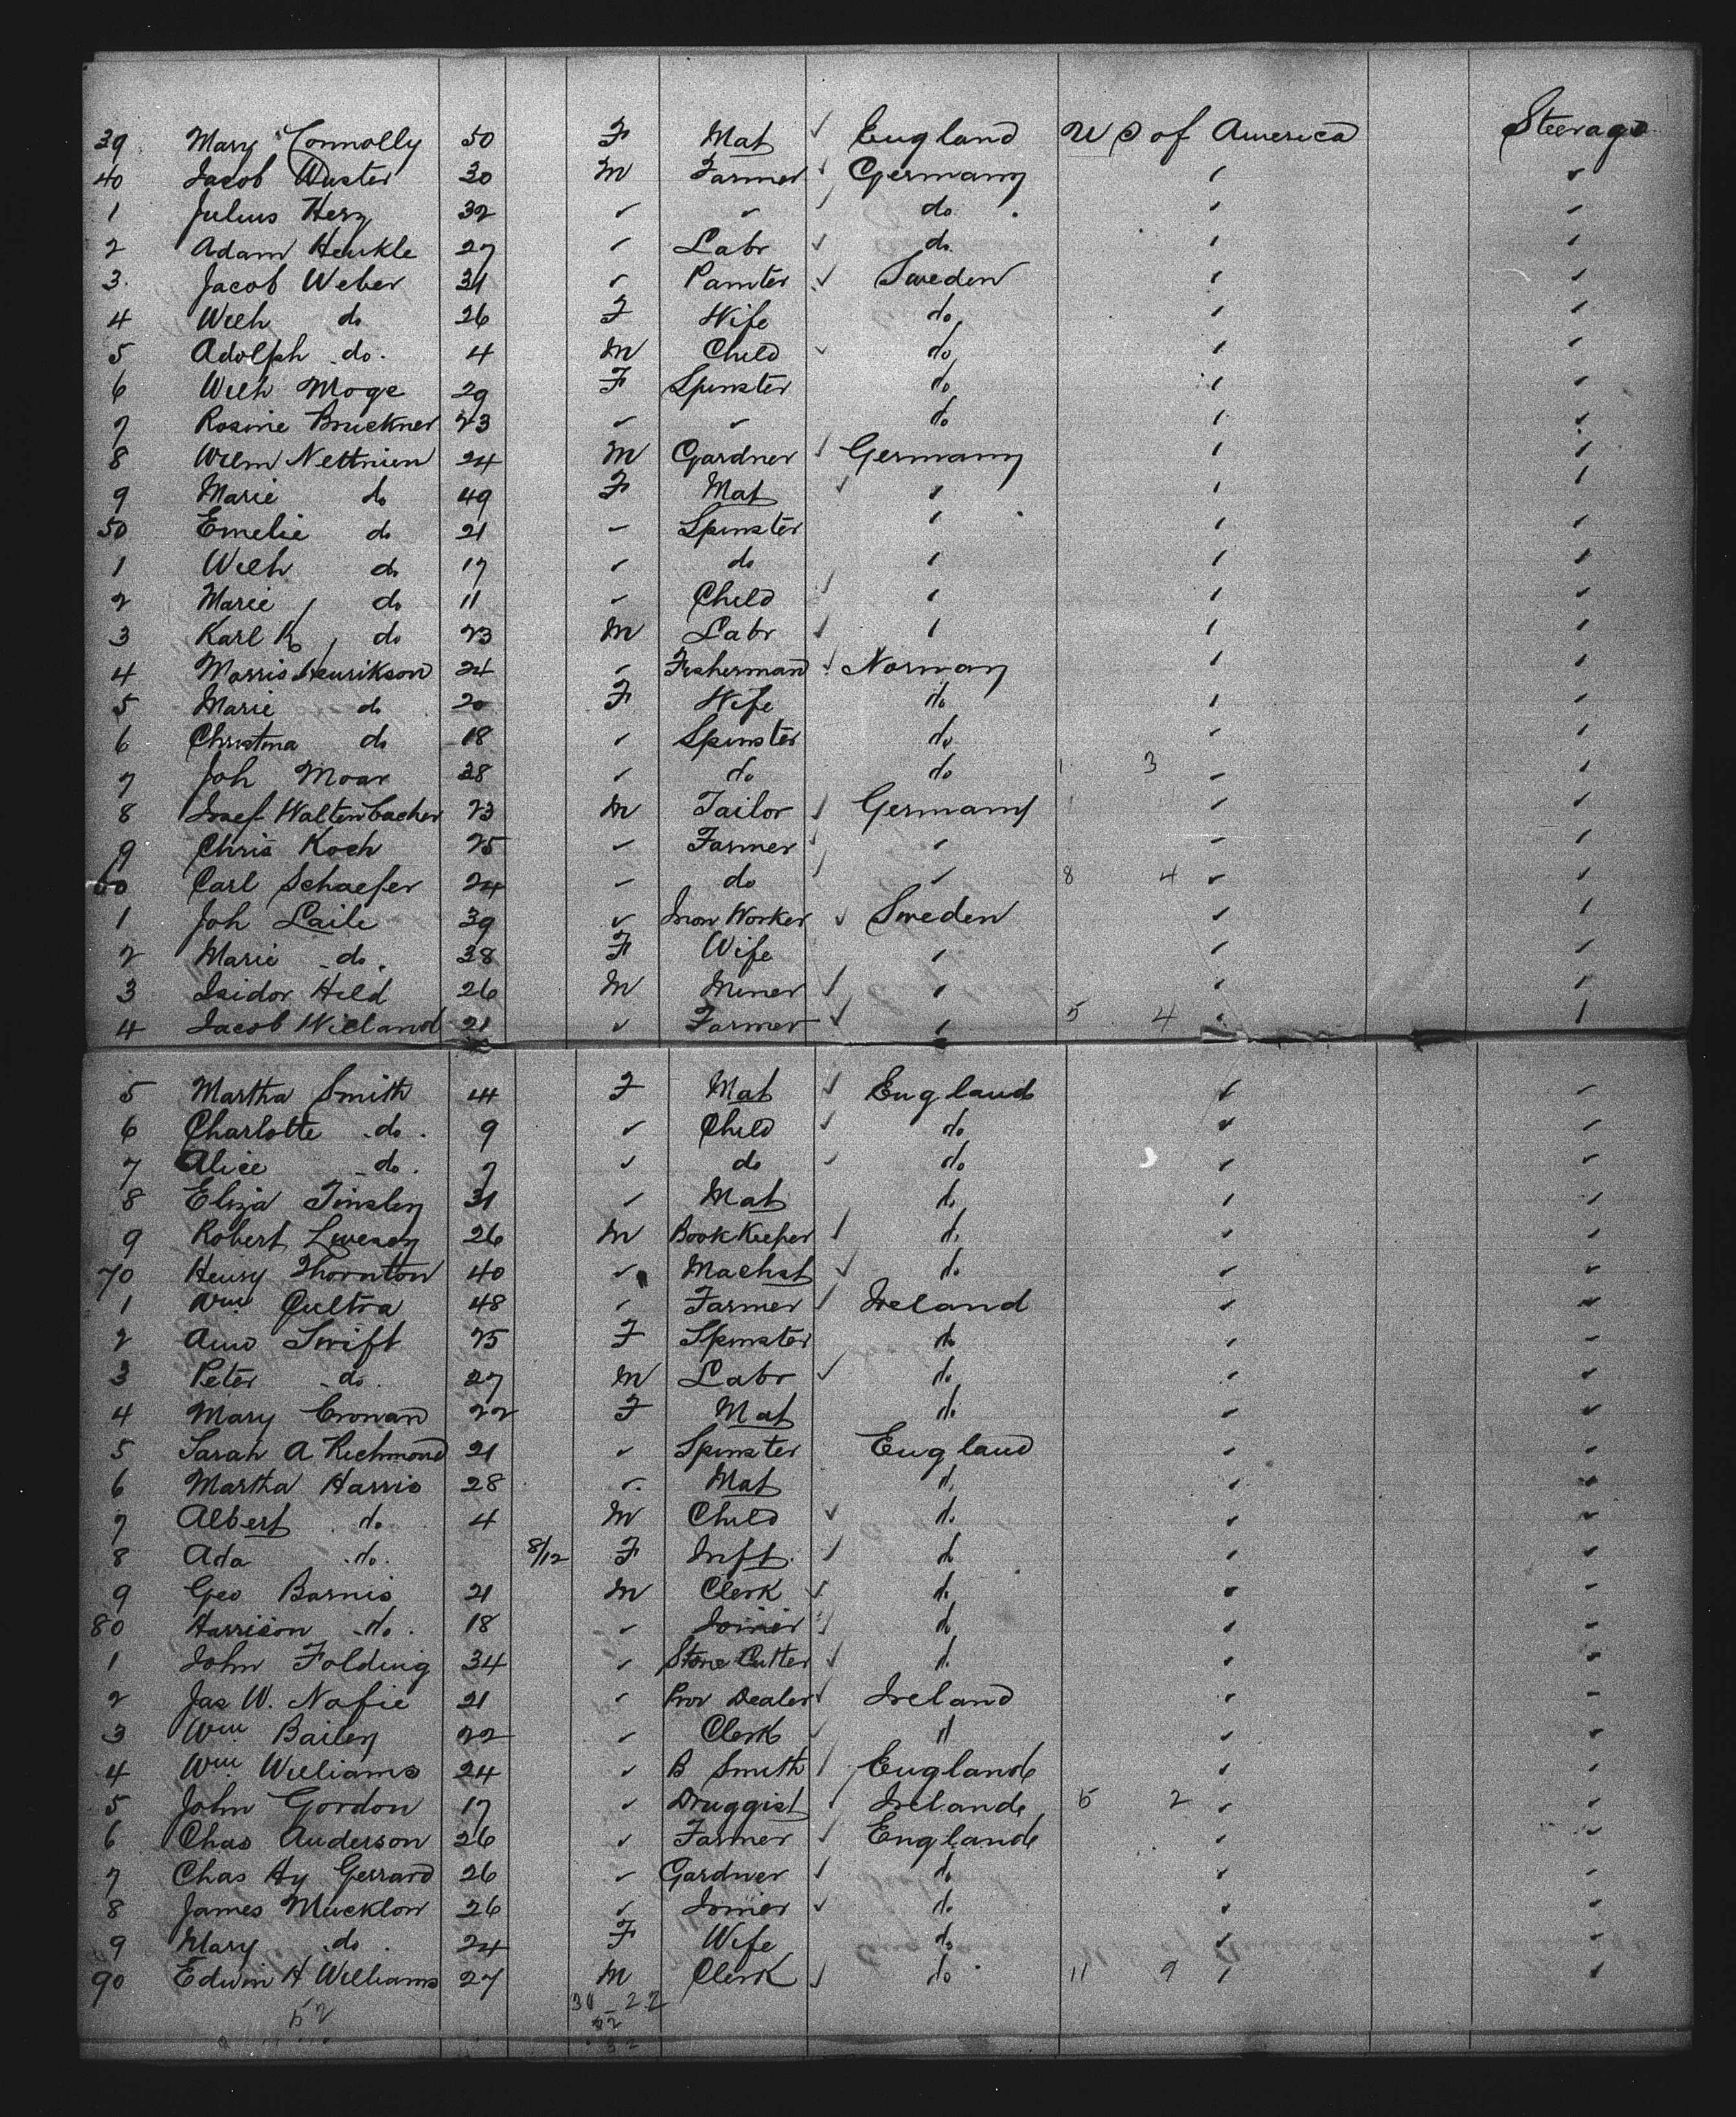 39 Mary Connolly 50 F Mat ✓ England U S of America Steerage
40 Jacob Wuster 30 M Farmer ✓ Germany
1 Julius Herz 32 ✓ ✓ ✓ do
2 Adam Henkle 27 ✓ Labr ✓ do
3 Jacob Weber 31 ✓ Painter ✓ Sweden
4 Wilh do 26 F Wife do
5 Adolph do 4 M Child ✓ do
6 Wilh Moge 29 F Spinster do
7 Rosine Bruckner 23 ✓ ✓ do
8 Wilm Nettnien 24 M Gardner ✓ Germany
9 Marie do 49 F Mat ✓
50 Emelie do 21 Spinster
1 Wilh do 17 ✓ do
2 Marie do 11 ✓ Child ✓
3 Karl R do 23 M Labr ✓
4 Morris Henrikson 24 ✓ Fisherman ✓ Norway
5 Marie do 20 F Wife do
6 Christina do 18 ✓ Spinster do
7 Joh Moar 28 ✓ do do 1 3
8 Josef Waltenbacher 23 M Tailor ✓ Germany
9 Chris Koch 25 ✓ Farmer ✓
60 Carl Schaefer 24 ✓ do ✓ 8 4
1 Joh Laile 39 ✓ Iron Worker ✓ Sweden
2 Marie do 38 F Wife
3 Isidor Held 26 M Miner ✓
4 Jacob Wieland 21 ✓ Farmer ✓ 5 4
5 Martha Smith 44 F Mat ✓ England
6 Charlotte do 9 ✓ Child ✓ do
7 Alice do 7 ✓ do ✓ do
8 Eliza Tinsley 31 ✓ Mat do
9 Robert Livesey 26 M Book Keeper ✓ do
70 Henry Thornton 40 ✓ Machst ✓ do
1 Wm Cultra 48 ✓ Farmer ✓ Ireland
2 Ann Swift 25 F Spinster do
3 Peter do 27 M Labr ✓ do
4 Mary Cronan 22 F Mat do
5 Sarah A Richmond 21 ✓ Spinster England
6 Martha Harris 28 ✓ Mat do
7 Albert do 4 M Child ✓ do
8 Ada do 8/12 F Inft ✓ do
9 Geo Barnis 21 M Clerk ✓ do
80 Harrison do 18 ✓ Joiner ✓ do
1 John Folding 34 ✓ Stone Cutter ✓ do
2 Jas W. Nafie 21 ✓ Prov Dealer ✓ Ireland
3 Wm Bailey 22 ✓ Clerk ✓ do
4 Wm Williams 24 ✓ B Smith ✓ England
5 John Gordon 17 ✓ Druggist ✓ Ireland 5 2
6 Chas Anderson 26 ✓ Farmer ✓ England
7 Chas Hy Gerrard 26 ✓ Gardner ✓ do
8 James Mucklow 26 ✓ Joiner ✓ do
9 Mary do 24 F Wife do
90 Edwin H Williams 27 M Clerk ✓ do 11 9
52 30 22
52